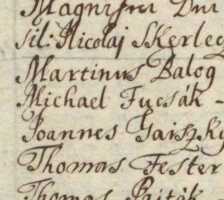 Magnifici Dni
sil: Nicolaj Skerleg
Martinus Balog
Michael Fucsák
Joannes Gaiszky
Thomas Fester
Thomas Pajták